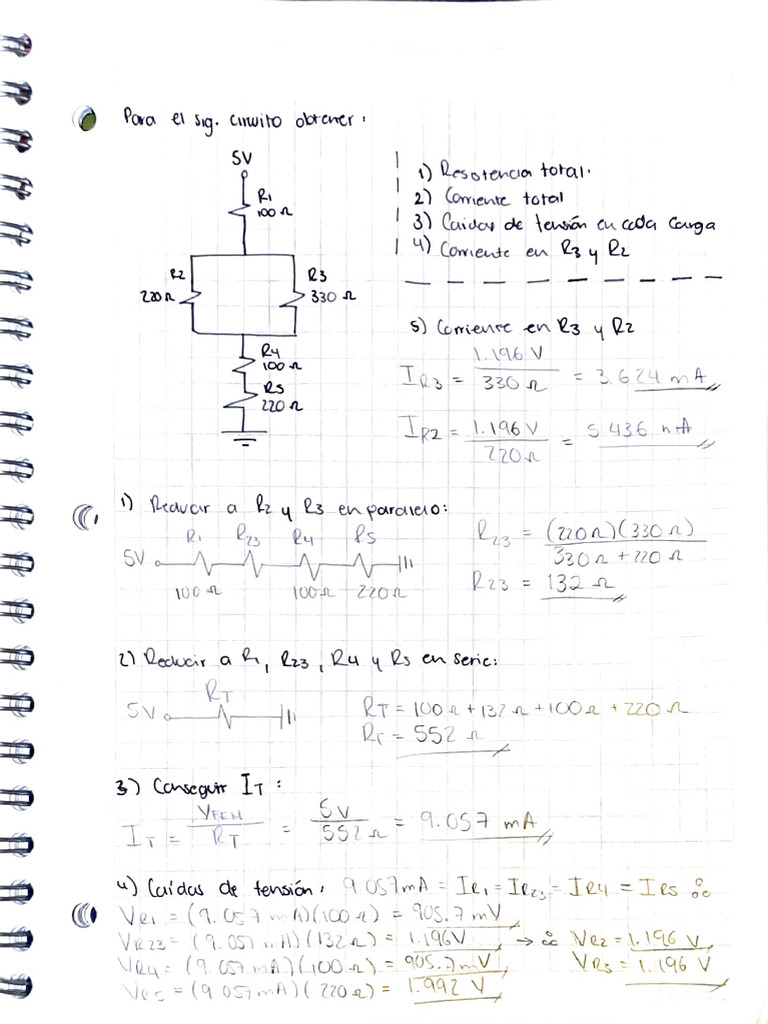 Para el sig. circuito obtener:
5V
R1
100 Ω
R2
220 Ω
R3
330 Ω
R4
100 Ω
R5
220 Ω
1) Resotencia total.
2) Corriente total
3) Caidas de tensión en cada carga
4) Corriente en R3 y R2
5) Corriente en R3 y R2
IR3 = 1.196 V / 330 Ω = 3.624 mA
IR2 = 1.196 V / 220 Ω = 5 436 mA
1) Reducir a R2 y R3 en paralelo:
R1 R23 R4 R5
5V
100 Ω 100 Ω 220 Ω
R23 = (220 Ω)(330 Ω) / 330 Ω + 220 Ω
R23 = 132 Ω
2) Reducir a R1, R23, R4 y R5 en serie:
RT
5V
RT = 100 Ω + 132 Ω + 100 Ω + 220 Ω
RT = 552 Ω
3) Conseguir IT:
IT = VFEN / RT = 5V / 552 Ω = 9.057 mA
4) Caídas de tensión: 9.057mA = IR1 = IR23 = IR4 = IR5 ∴
VR1 = (9.057 mA)(100 Ω) = 905.7 mV
VR23 = (9.057 mA)(132 Ω) = 1.196V → ∴ VR2 = 1.196 V
VR4 = (9.057 mA)(100 Ω) = 905.7 mV VR3 = 1.196 V
VR5 = (9 057mA)(220 Ω) = 1.992 V